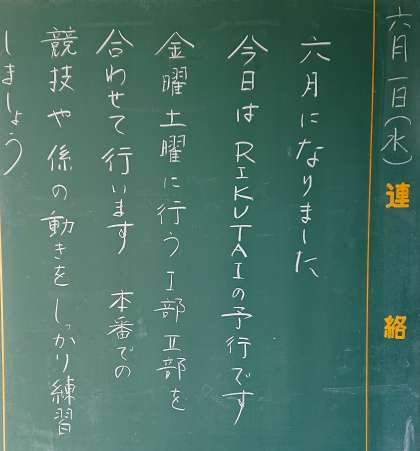 六月一日(水)
連絡
六月になりました、
今日はRIKUTAIの予行です
金曜土曜に行うⅠ部Ⅱ部を
合わせて行います 本番での
競技や係の動きをしっかり練習
しましょう